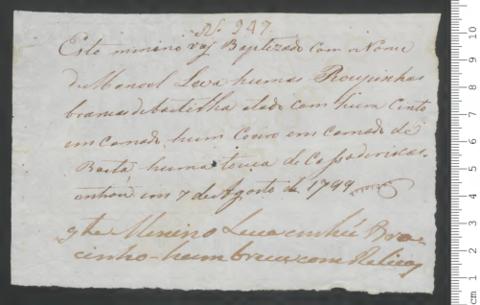 N.º 247
Este minino vaj Baptezado com o Nome
de Manoel Leva humas Roupinhas
brancas de baetilha atado com huma Cinta
emcarnada, hum Coeiro emcarnado de
Baeta huma touca de Cassa de riscas.
entrou em 7 de Agosto de 1799
Menino Leva em hú Bra-
cinho hum breve com Relicas